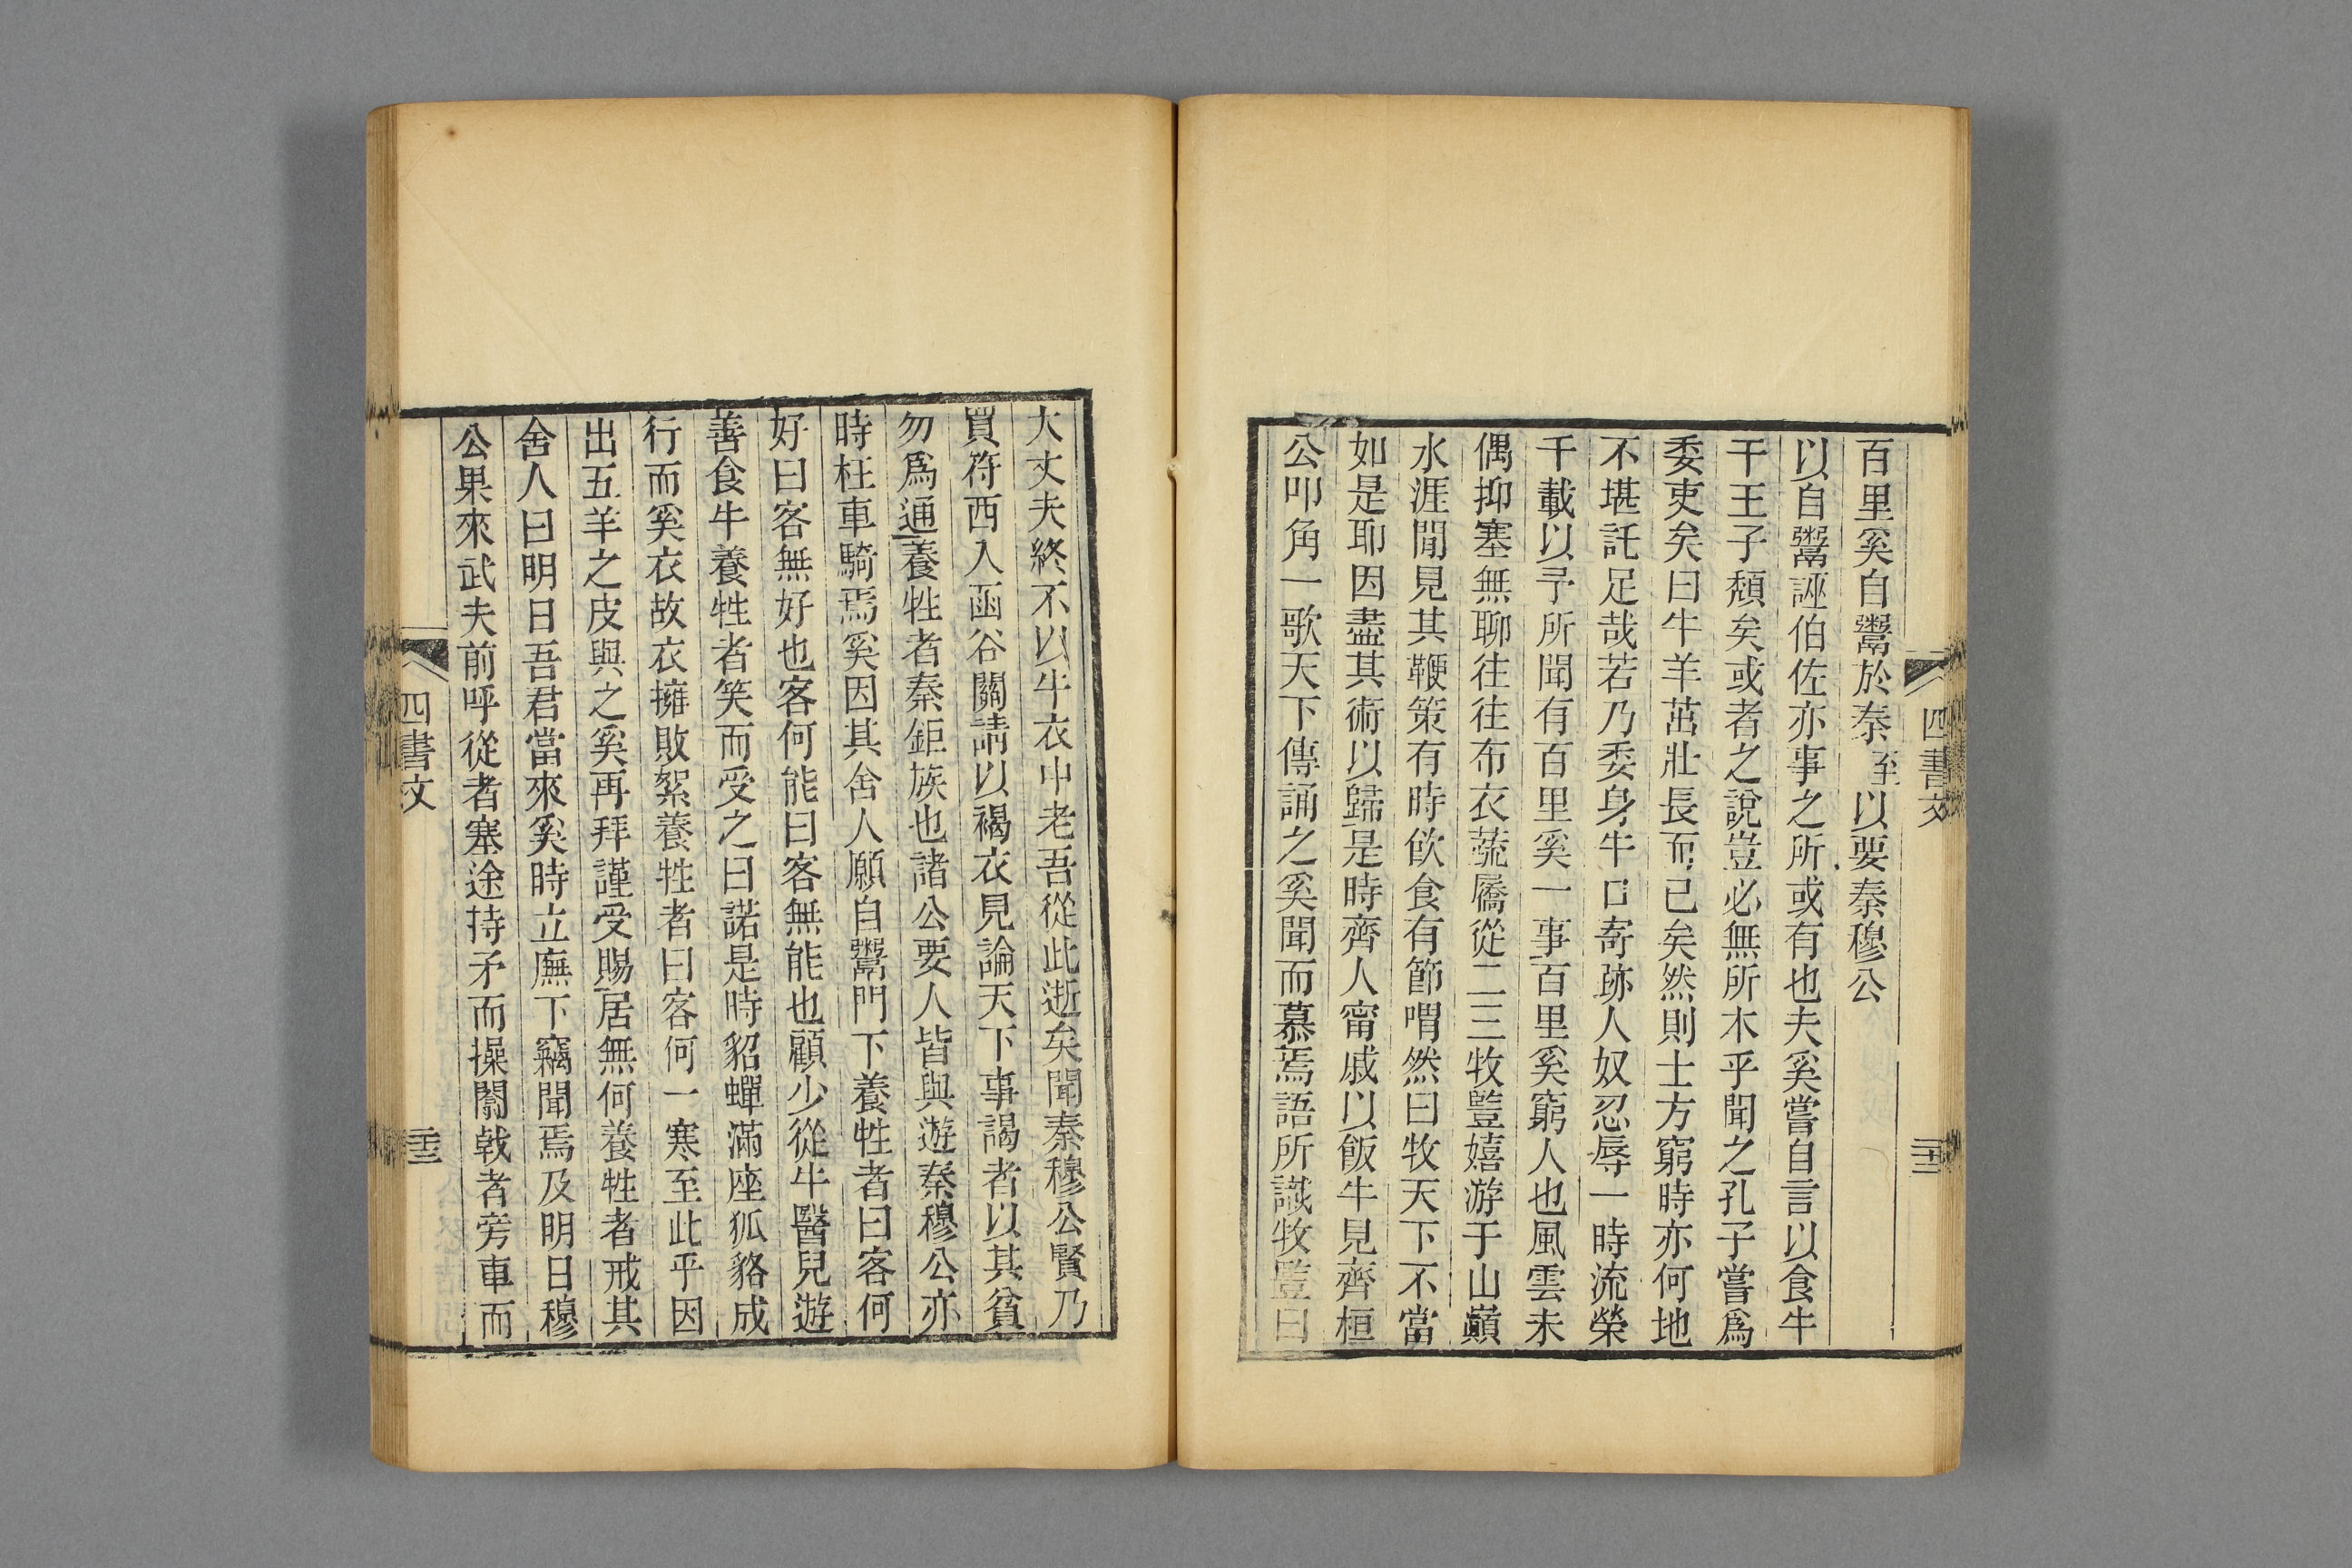 百里奚自鬻於秦至以要秦穆公
以自鬻誣伯佐亦事之所或有也夫奚嘗自言以食牛
干王子頹矣或者之說豈必無所本乎聞之孔子嘗爲
委吏矣曰牛羊茁壯長而已矣然則士方窮時亦何地
不堪託足哉若乃委身牛口寄跡人奴忍辱一時流榮
千載以予所聞有百里奚一事百里奚窮人也風雲未
偶抑塞無聊往往布衣蔬屩從二三牧豎嬉游于山巔
水涯間見其鞭策有時飲食有節喟然曰牧天下不當
如是耶因盡其術以歸是時齊人甯戚以飯牛見齊桓
公叩角一歌天下傳誦之奚聞而慕焉語所識牧豎曰
四書文
二十二
大丈夫終不以牛衣中老吾從此逝矣聞秦穆公賢乃
買符西入函谷關請以褐衣見論天下事謁者以其貧
勿爲通養牲者秦鉅族也諸公要人皆與遊秦穆公亦
時枉車騎焉奚因其舍人願自鬻門下養牲者曰客何
好曰客無好也客何能曰客無能也顧少從牛醫兒遊
善食牛養牲者笑而受之曰諾是時貂蟬滿座狐貉成
行而奚衣故衣擁敗絮養牲者曰客何一寒至此乎因
出五羊之皮與之奚再拜謹受賜居無何養牲者戒其
舍人曰明日吾君當來奚時立廡下竊聞焉及明日穆
公果來武夫前呼從者塞途持矛而操闟戟者旁車而
四書文
二十三